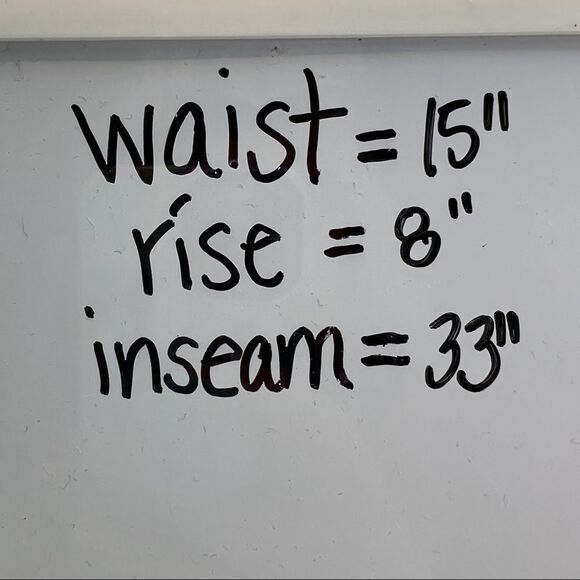 waist = 15"
rise = 8"
inseam = 33"